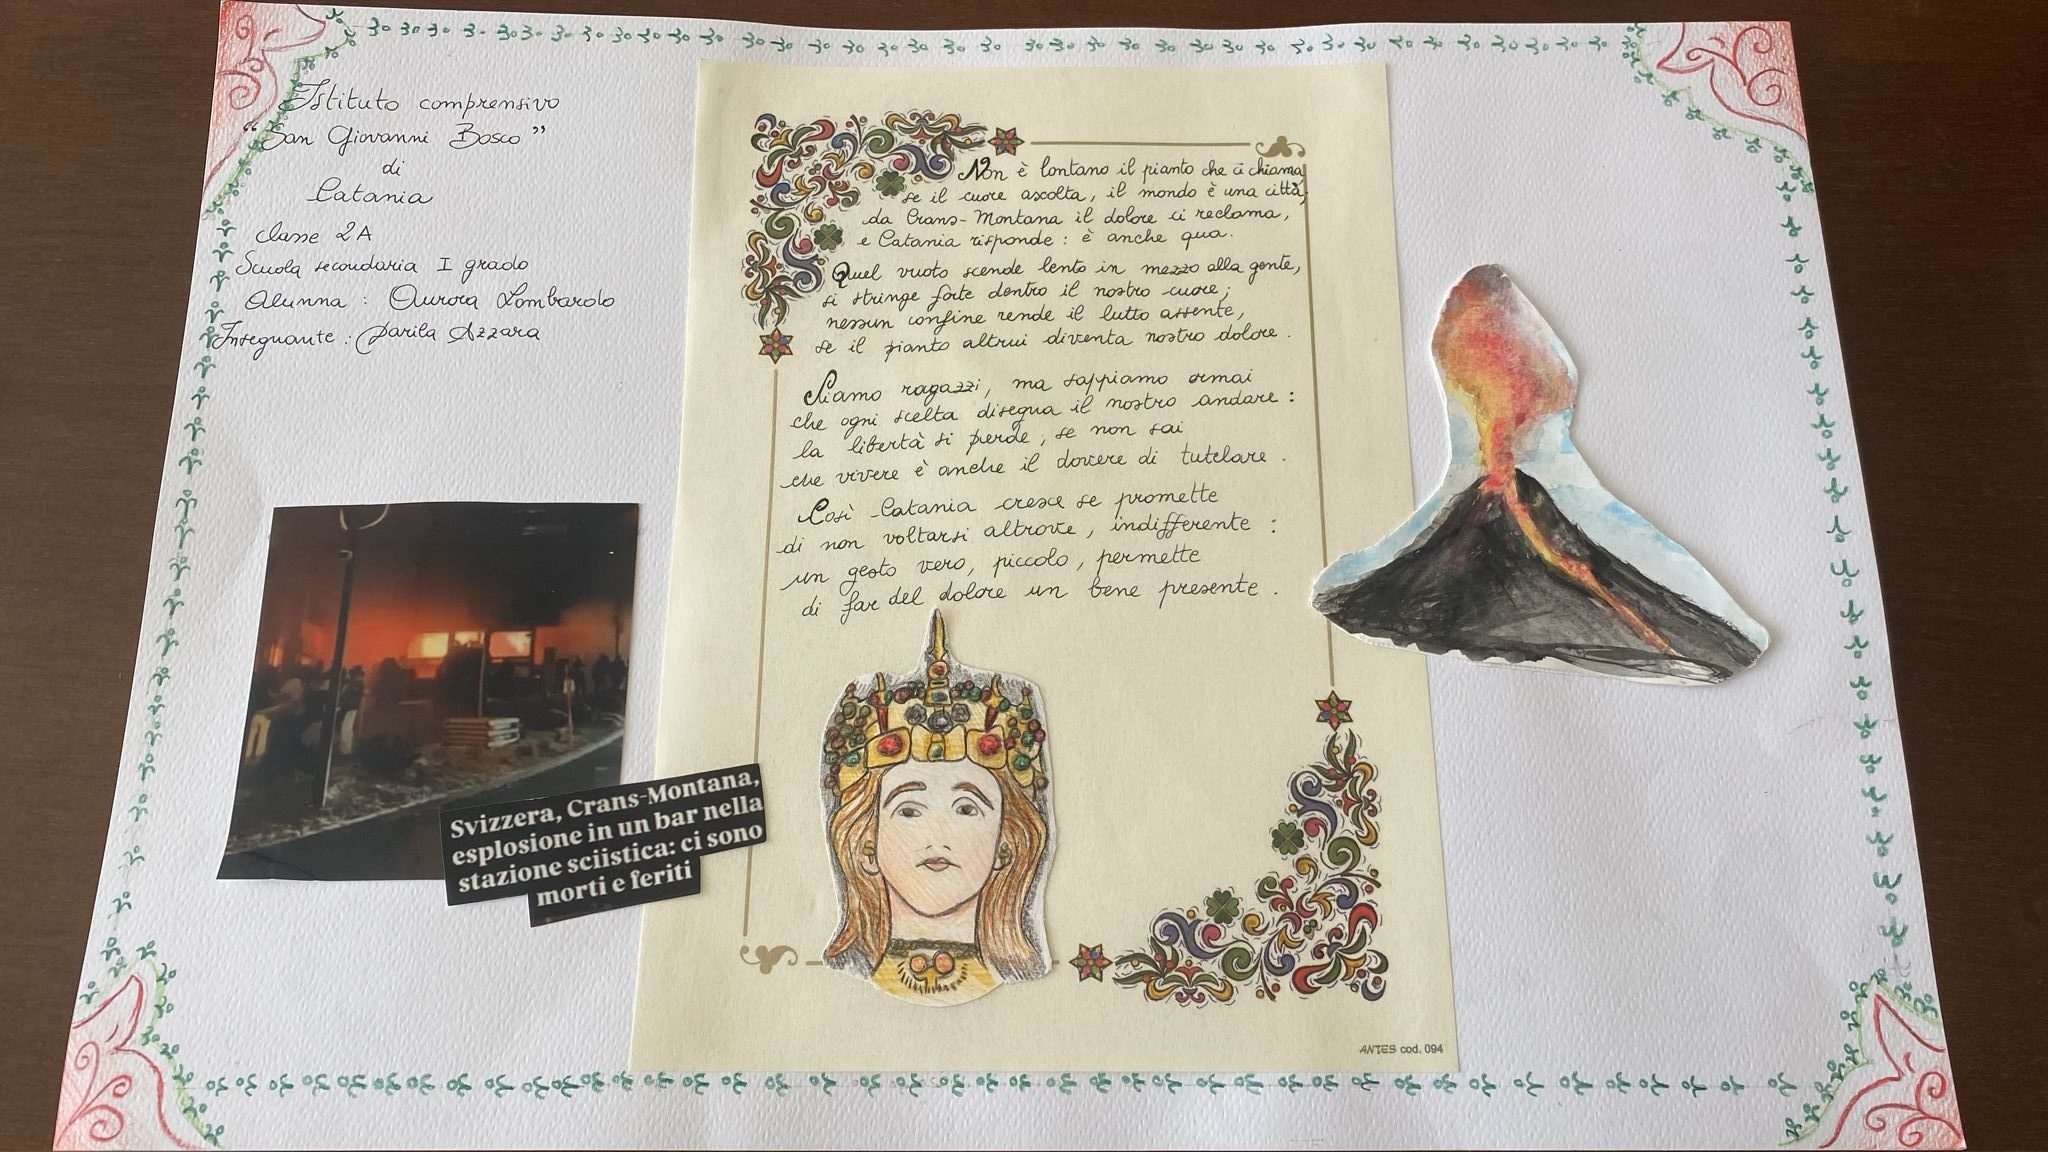 Istituto comprensivo
"San Giovanni Bosco"
di
Catania
classe 2A
Scuola secondaria I grado
Alunna: Aurora Lombardo
Insegnante: Azzara
Non è lontano il pianto che ci chiama
se il cuore ascolta, il mondo è una città;
da Crans-Montana il dolore ci reclama,
e Catania risponde: è anche qua.
Quel vuoto scende lento in mezzo alla gente,
si stringe forte dentro il nostro cuore;
nessun confine rende il lutto assente,
se il pianto altrui diventa nostro dolore.
Siamo ragazzi, ma sappiamo ormai
che ogni scelta disegna il nostro andare:
la libertà si perde, se non sai
che vivere è anche il dovere di tutelare.
Così Catania cresce se promette
di non voltarsi altrove, indifferente:
un gesto vero, piccolo, permette
di far del dolore un bene presente.
Svizzera, Crans-Montana,
esplosione in un bar nella
stazione sciistica: ci sono
morti e feriti
ANTES cod. 094